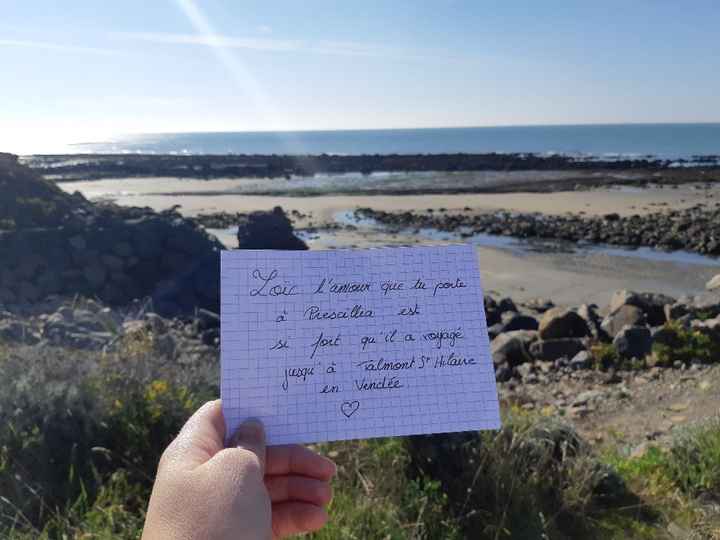 Loïc l'amour que tu porte
à Prescillia est
si fort qu'il a voyagé
jusqu'à Talmont St Hilaire
en Vendée
♡